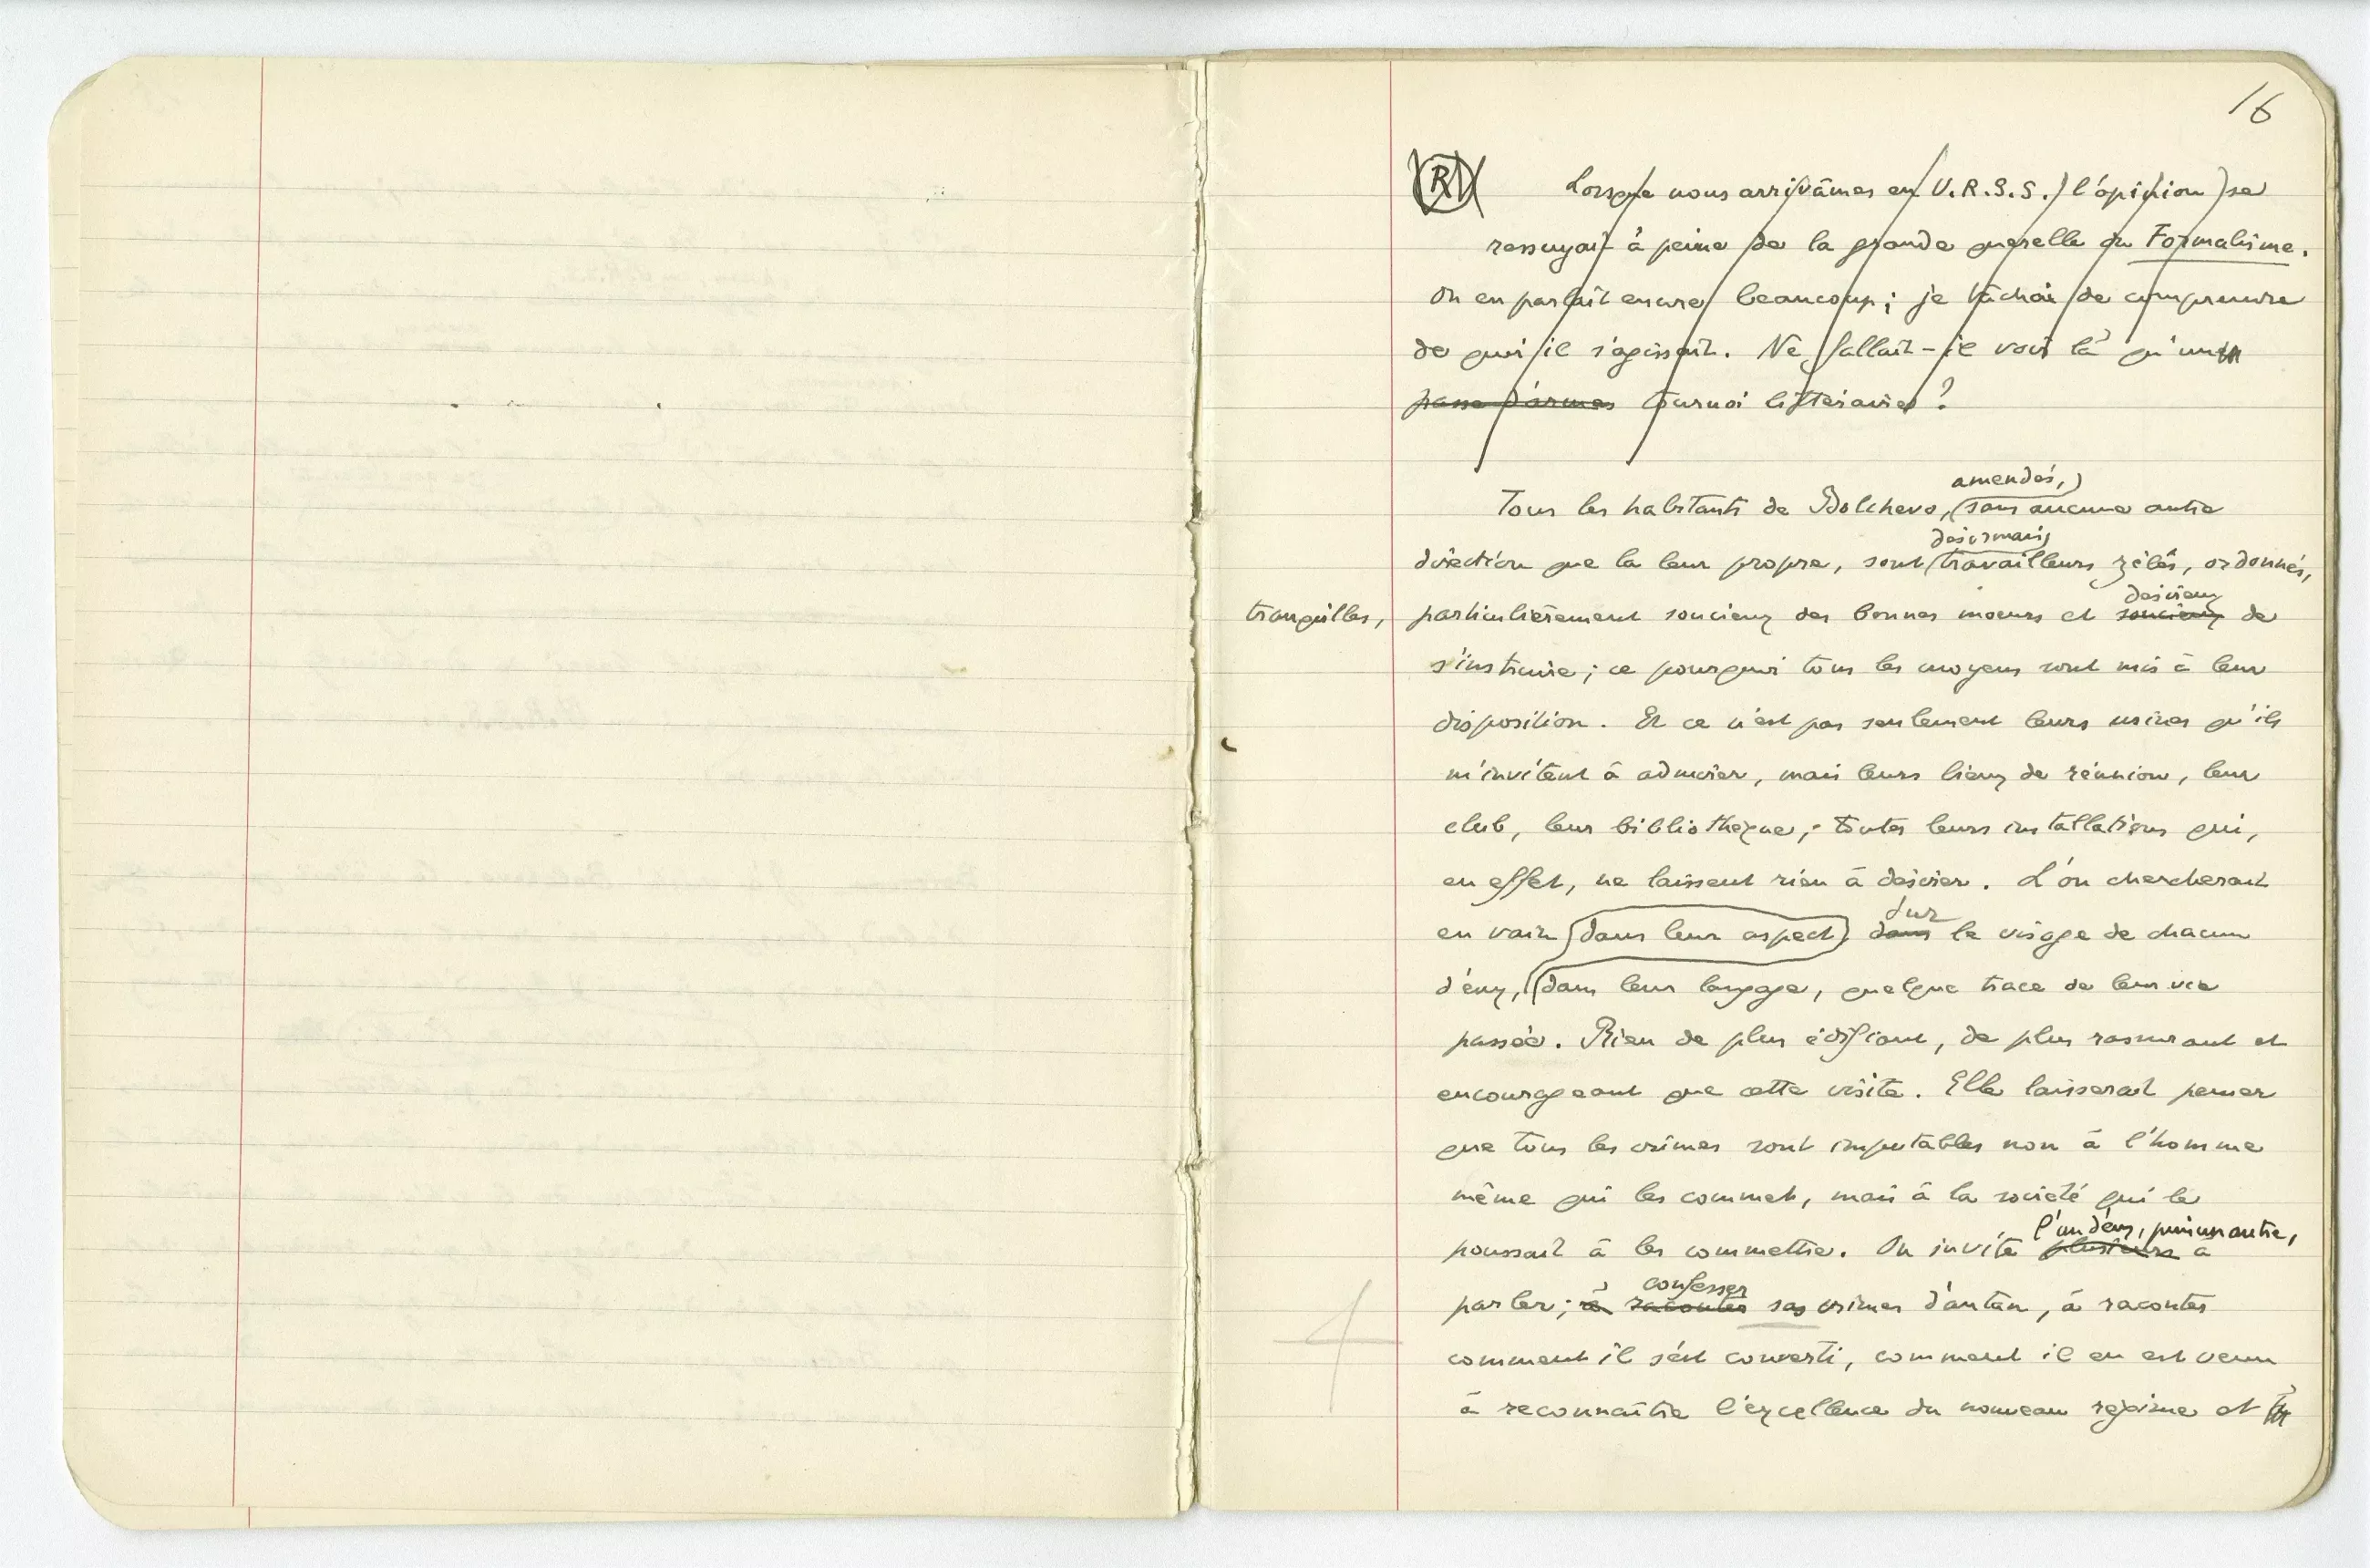 16
R Lorsque nous arrivâmes en U.R.S.S. l'opinion se
ressuyait à peine de la grande querelle du Formalisme.
On en parlait encore beaucoup; je tâchai de comprendre
de quoi il s'agissait. Ne fallait-il voir là qu'un
passe d'armes tournoi littéraire?
amendés,
Tous les habitants de Bolchevo, sans aucune autre
désormais
direction que la leur propre, sont travailleurs zélés, ordonnés,
désireux
tranquilles, particulièrement soucieux des bonnes moeurs et soucieux de
s'instruire; ce pourquoi tous les moyens sont mis à leur
disposition. Et ce n'est pas seulement leurs usines qu'ils
m'invitent à admirer, mais leurs lieux de réunion, leur
club, leur bibliothèque, toutes leurs installations qui,
en effet, ne laissent rien à désirer. L'on chercherait
sur
en vain dans leur aspect dans le visage de chacun
d'eux, dans leur langage, quelque trace de leur vie
passée. Rien de plus édifiant, de plus rassurant et
encourageant que cette visite. Elle laisserait penser
que tous les crimes sont imputables non à l'homme
même qui les commet, mais à la société qui le
l'un d'eux, puis un autre,
poussait à les commettre. On invita plusieurs à
confesser
parler; à raconter ses crimes d'antan, à raconter
comment il s'est converti, comment il en est venu
à reconnaître l'excellence du nouveau régime et